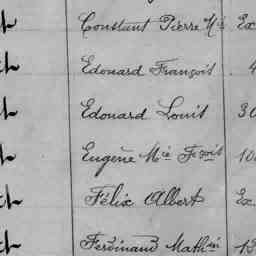 Constant Pierre Mie Ex
Edouard François 4
Edouard Louis 30
Eugène Mie Fçois 10
Félix Albert Ex
Ferdinand Mathin 13